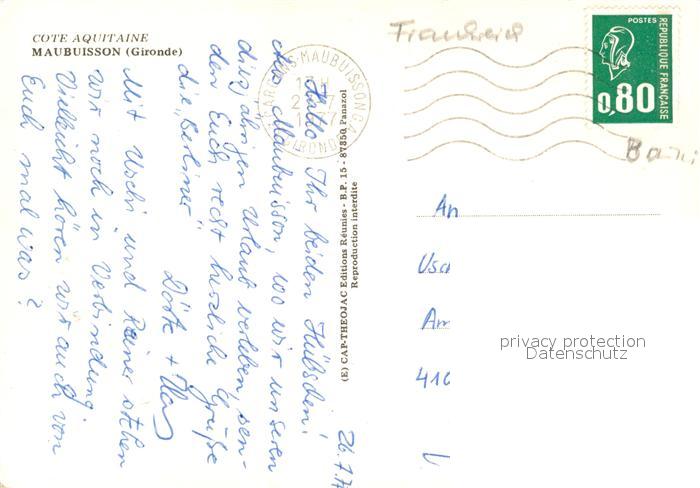 COTE AQUITAINE
MAUBUISSON (Gironde)
Hallo Ihr beiden Hübschen!
Aus Maubuisson, wo wir unseren
diesjährigen Urlaub verleben, sen-
den Euch recht herzliche Grüße
die „Berliner"
Dörte +
Mit Uschi und Rainer stehen
wir noch in Verbindung.
Vielleicht hören wir auch von
Euch mal was?
26.7.7
(E) CAP-THEOJAC Editions Réunies - B.P. 15 - 87350 Panazol
Reproduction interdite
CARCANS-MAUBUISSON C.A.
GIRONDE
Frankreich
POSTES
REPUBLIQUE FRANÇAISE
0,80
An
Am
410
privacy protection
Datenschutz